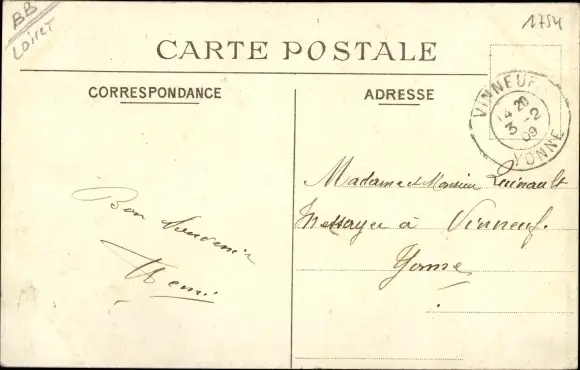 BB
LOIRET
1754
CARTE POSTALE
CORRESPONDANCE
ADRESSE
VINNEUF
4 20
3 - 2
09
YONNE
Bon Souvenir
Remi
Madame et Monsieur Quinault
Messager à Vinneuf.
Yonne